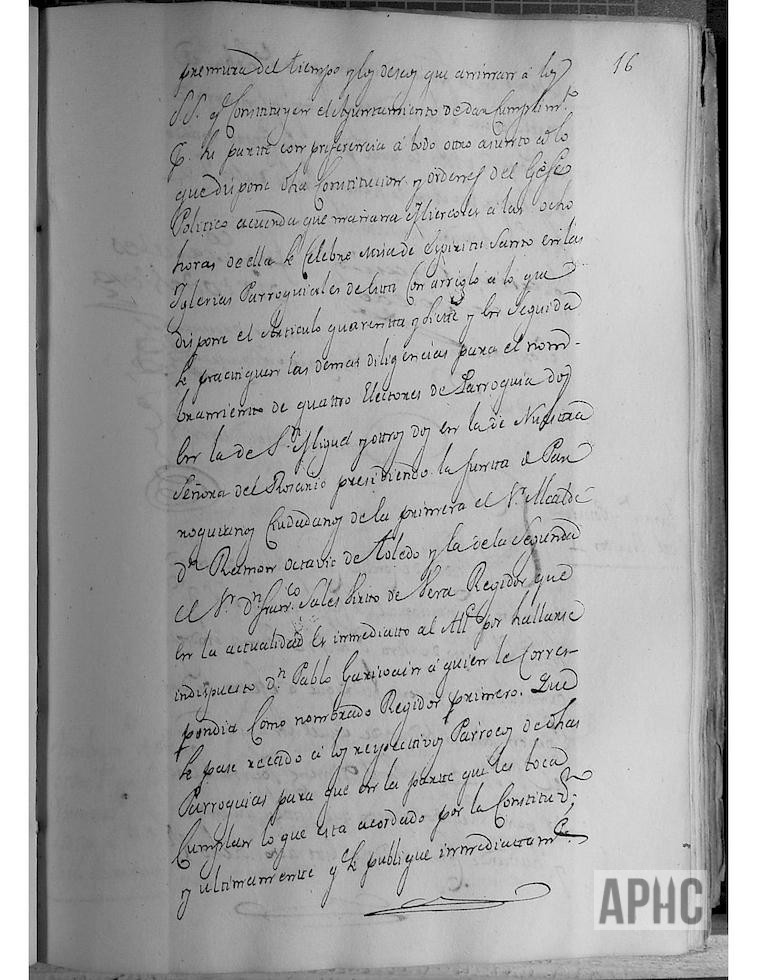 16
premura del tiempo y los deseos que animan á los
SS. q Constituyen el Ayuntamiento de dar Cumplim.to
p. su parte con preferencia á todo otro asunto á lo
que dispone dha Constitucion y ordenes del Gefe
Politico acuerda que mañana Miercoles á las ocho
horas de ella se Celebre Misa de Espiritu Santo en las
Iglesias Parroquiales de esta Con arriglo a lo que
dispone el Articulo quarenta y siete y en seguida
se practiquen las demas diligencias para el nom-
bramiento de quattro Electores de Parroquia dos
en la de S.n Miguel y otros dos en la de Nuestra
Señora del Rosario presidiendo la Junta de Par
roquianos Ciudadanos de la primera el S.r Alcalde
D.n Ramon Octavio de Toledo y la de la Segunda
el S.r D.n Fran.co Sales Pinto de Vera Regidor que
en la actualidad es inmediato al Alc.e por hallarse
indispuesto D.n Pablo Garivain á quien le Corres-
pondia Como nombrado Regidor primero. Que
se pase recado á los respectivos Párrocos de dhas
Parroquias para que en la parte que les toca
Cumplan lo que esta acordado por la Constitu.on
y ultimamente q se publique inmediatam.te
APHC